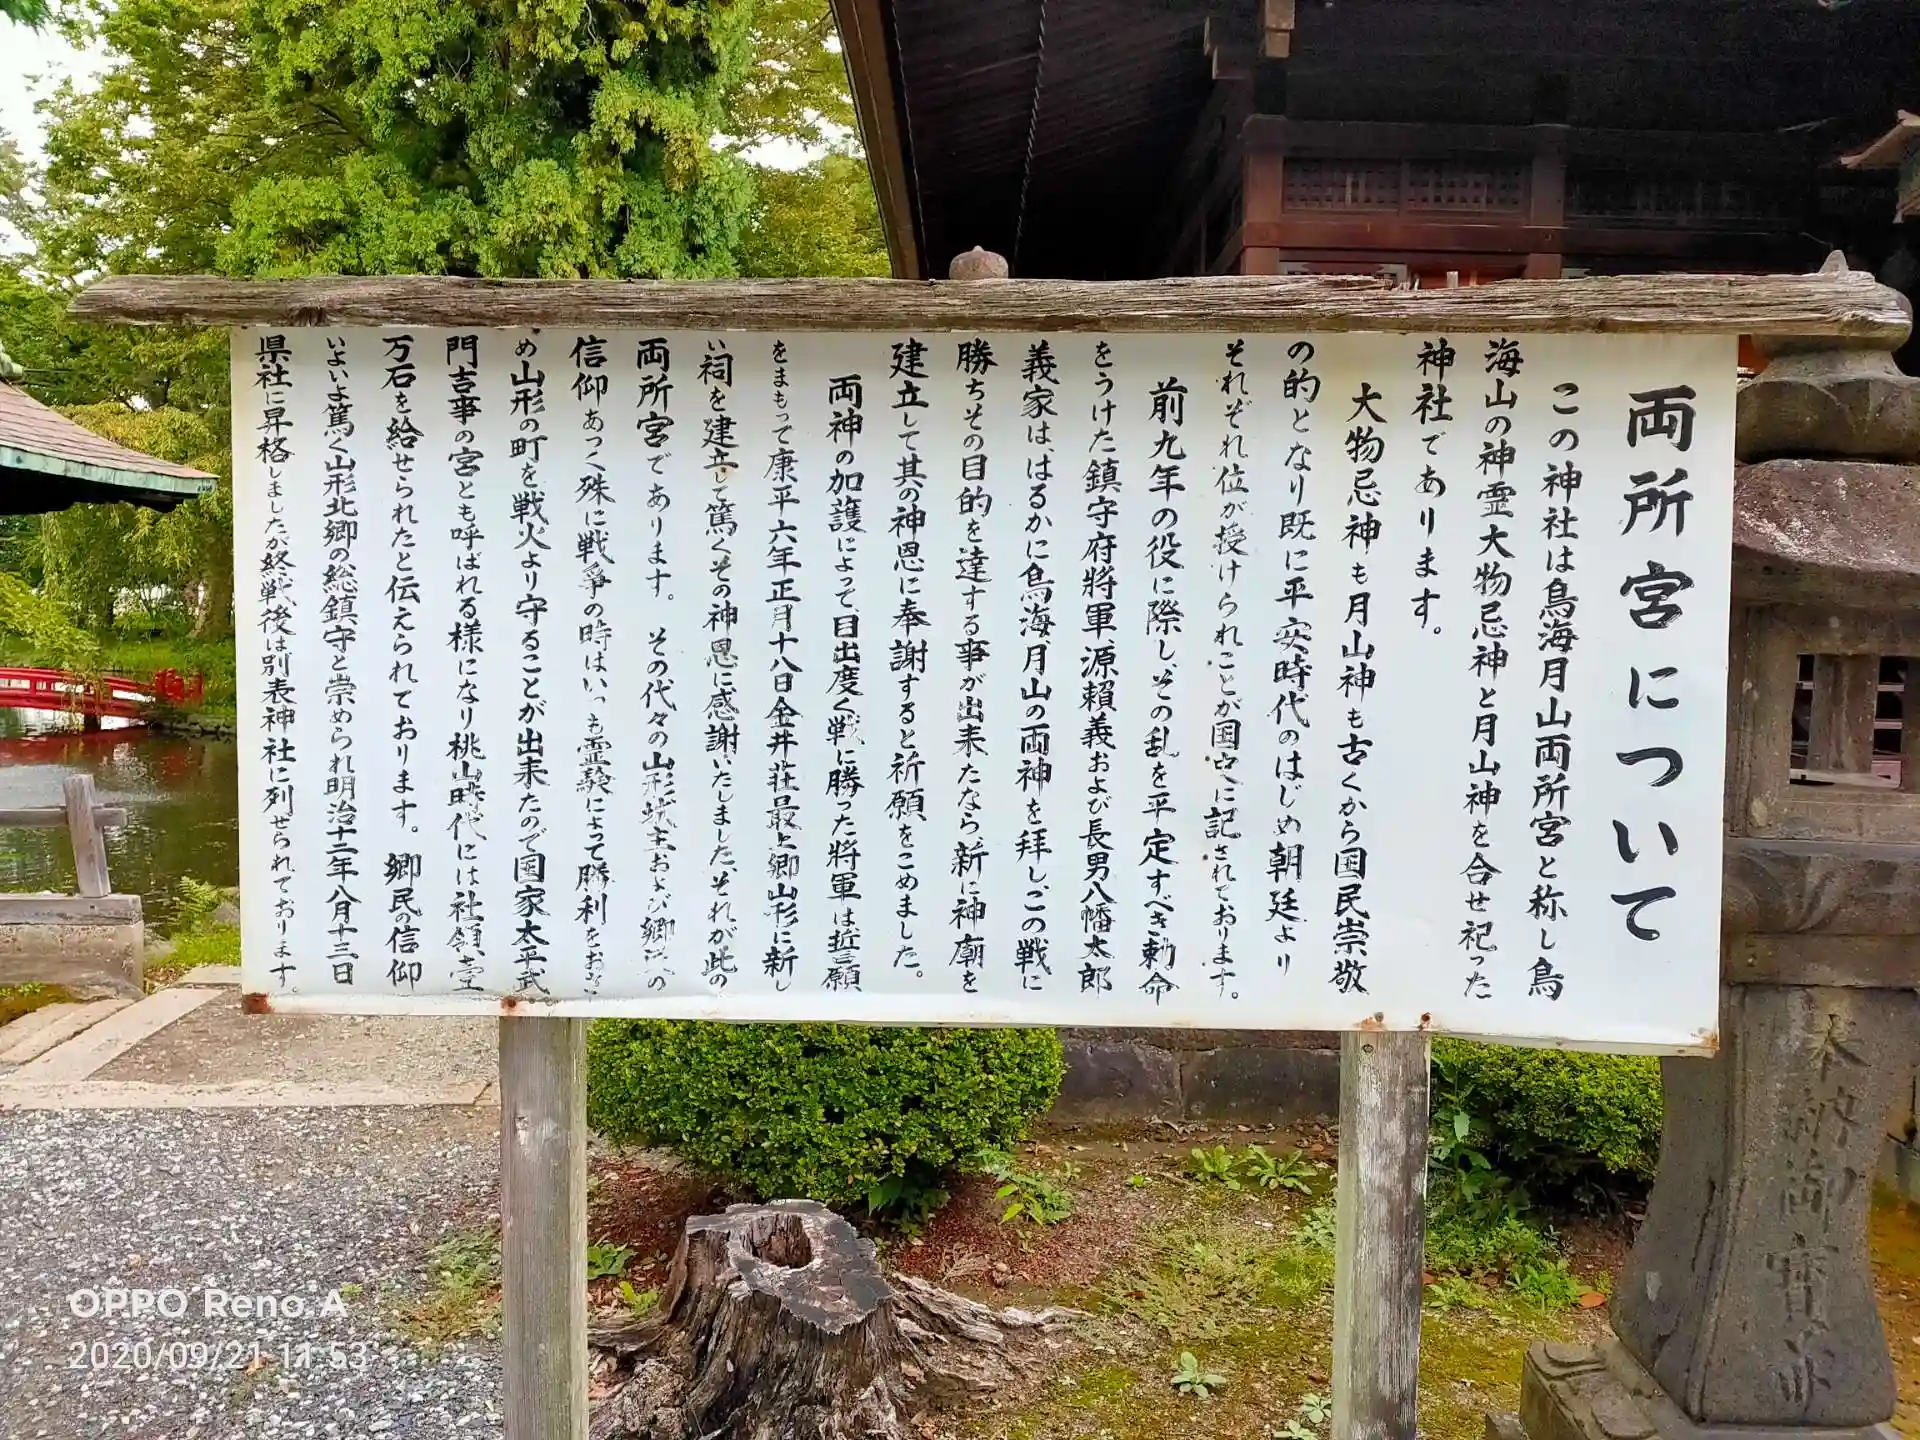 両所宮について
この神社は鳥海月山両所宮と称し鳥
海山の神霊大物忌神と月山神を合せ祀った
神社であります。
大物忌神も月山神も古くから国民崇敬
の的となり既に平安時代のはじめ朝廷より
それぞれ位が授けられことが国史に記されております。
前九年の役に際し、その乱を平定すべき勅命
をうけた鎮守府將軍源賴義および長男八幡太郎
義家は、はるかに鳥海、月山の両神を拝しこの戦に
勝ちその目的を達する事が出来たなら、新に神廟を
建立して其の神恩に奉謝すると祈願をこめました。
両神の加護によって、目出度く戦に勝った將軍は誓願
をまもって康平六年正月十八日金井荘最上郷山形に新し
い祠を建立して篤くその神恩に感謝いたしました、それが此の
両所宮であります。その代々の山形城主および郷民の
信仰あつく殊に戦爭の時はいつも霊験によって勝利をおさ
め山形の町を戦火より守ることが出来たので国家太平武
門吉事の宮とも呼ばれる様になり桃山時代には社領壹
万石を給せられたと伝えられております。郷民の信仰
いよいよ篤く山形北郷の総鎮守と崇められ明治十二年八月十三日
県社に昇格しましたが終戦、後は別表神社に列せられております。
奉納御寶
OPPO Reno A
2020/09/21 11:53